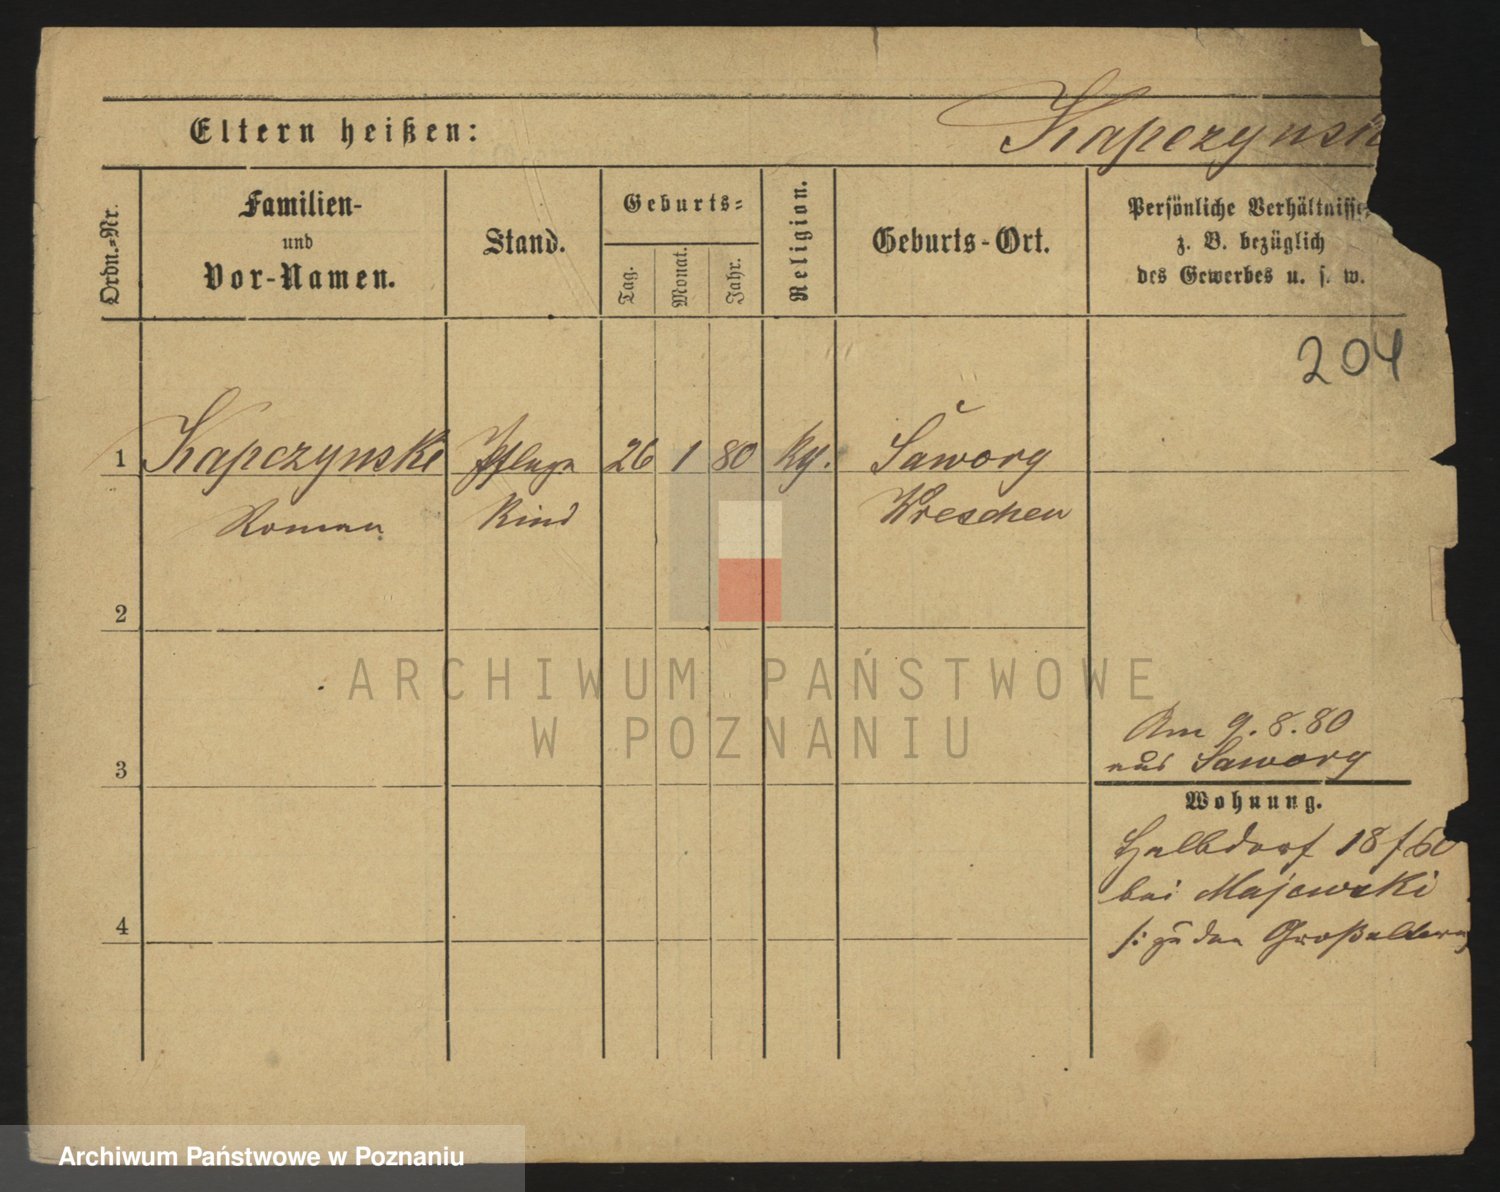 Eltern heißen:
Kapczynsk
Ordn.=Nr.
Familien-
und
Vor-Namen.
Stand.
Geburts=
Tag.
Monat.
Jahr.
Religion.
Geburts-Ort.
Persönliche Verhältnisse,
z. B. bezüglich
des Gewerbes u. s. w.
204
1 Kapczynski Pflege 26 1 80 Kg. Saworg
Roman Kind Wreschen
2
3
4
Am 9.8.80
aus Saworg
Wohnung.
Halbdorf 18 f 60
bei Majewski
/: zu den Großeltern
ARCHIWUM PAŃSTWOWE
W POZNANIU
Archiwum Państwowe w Poznaniu